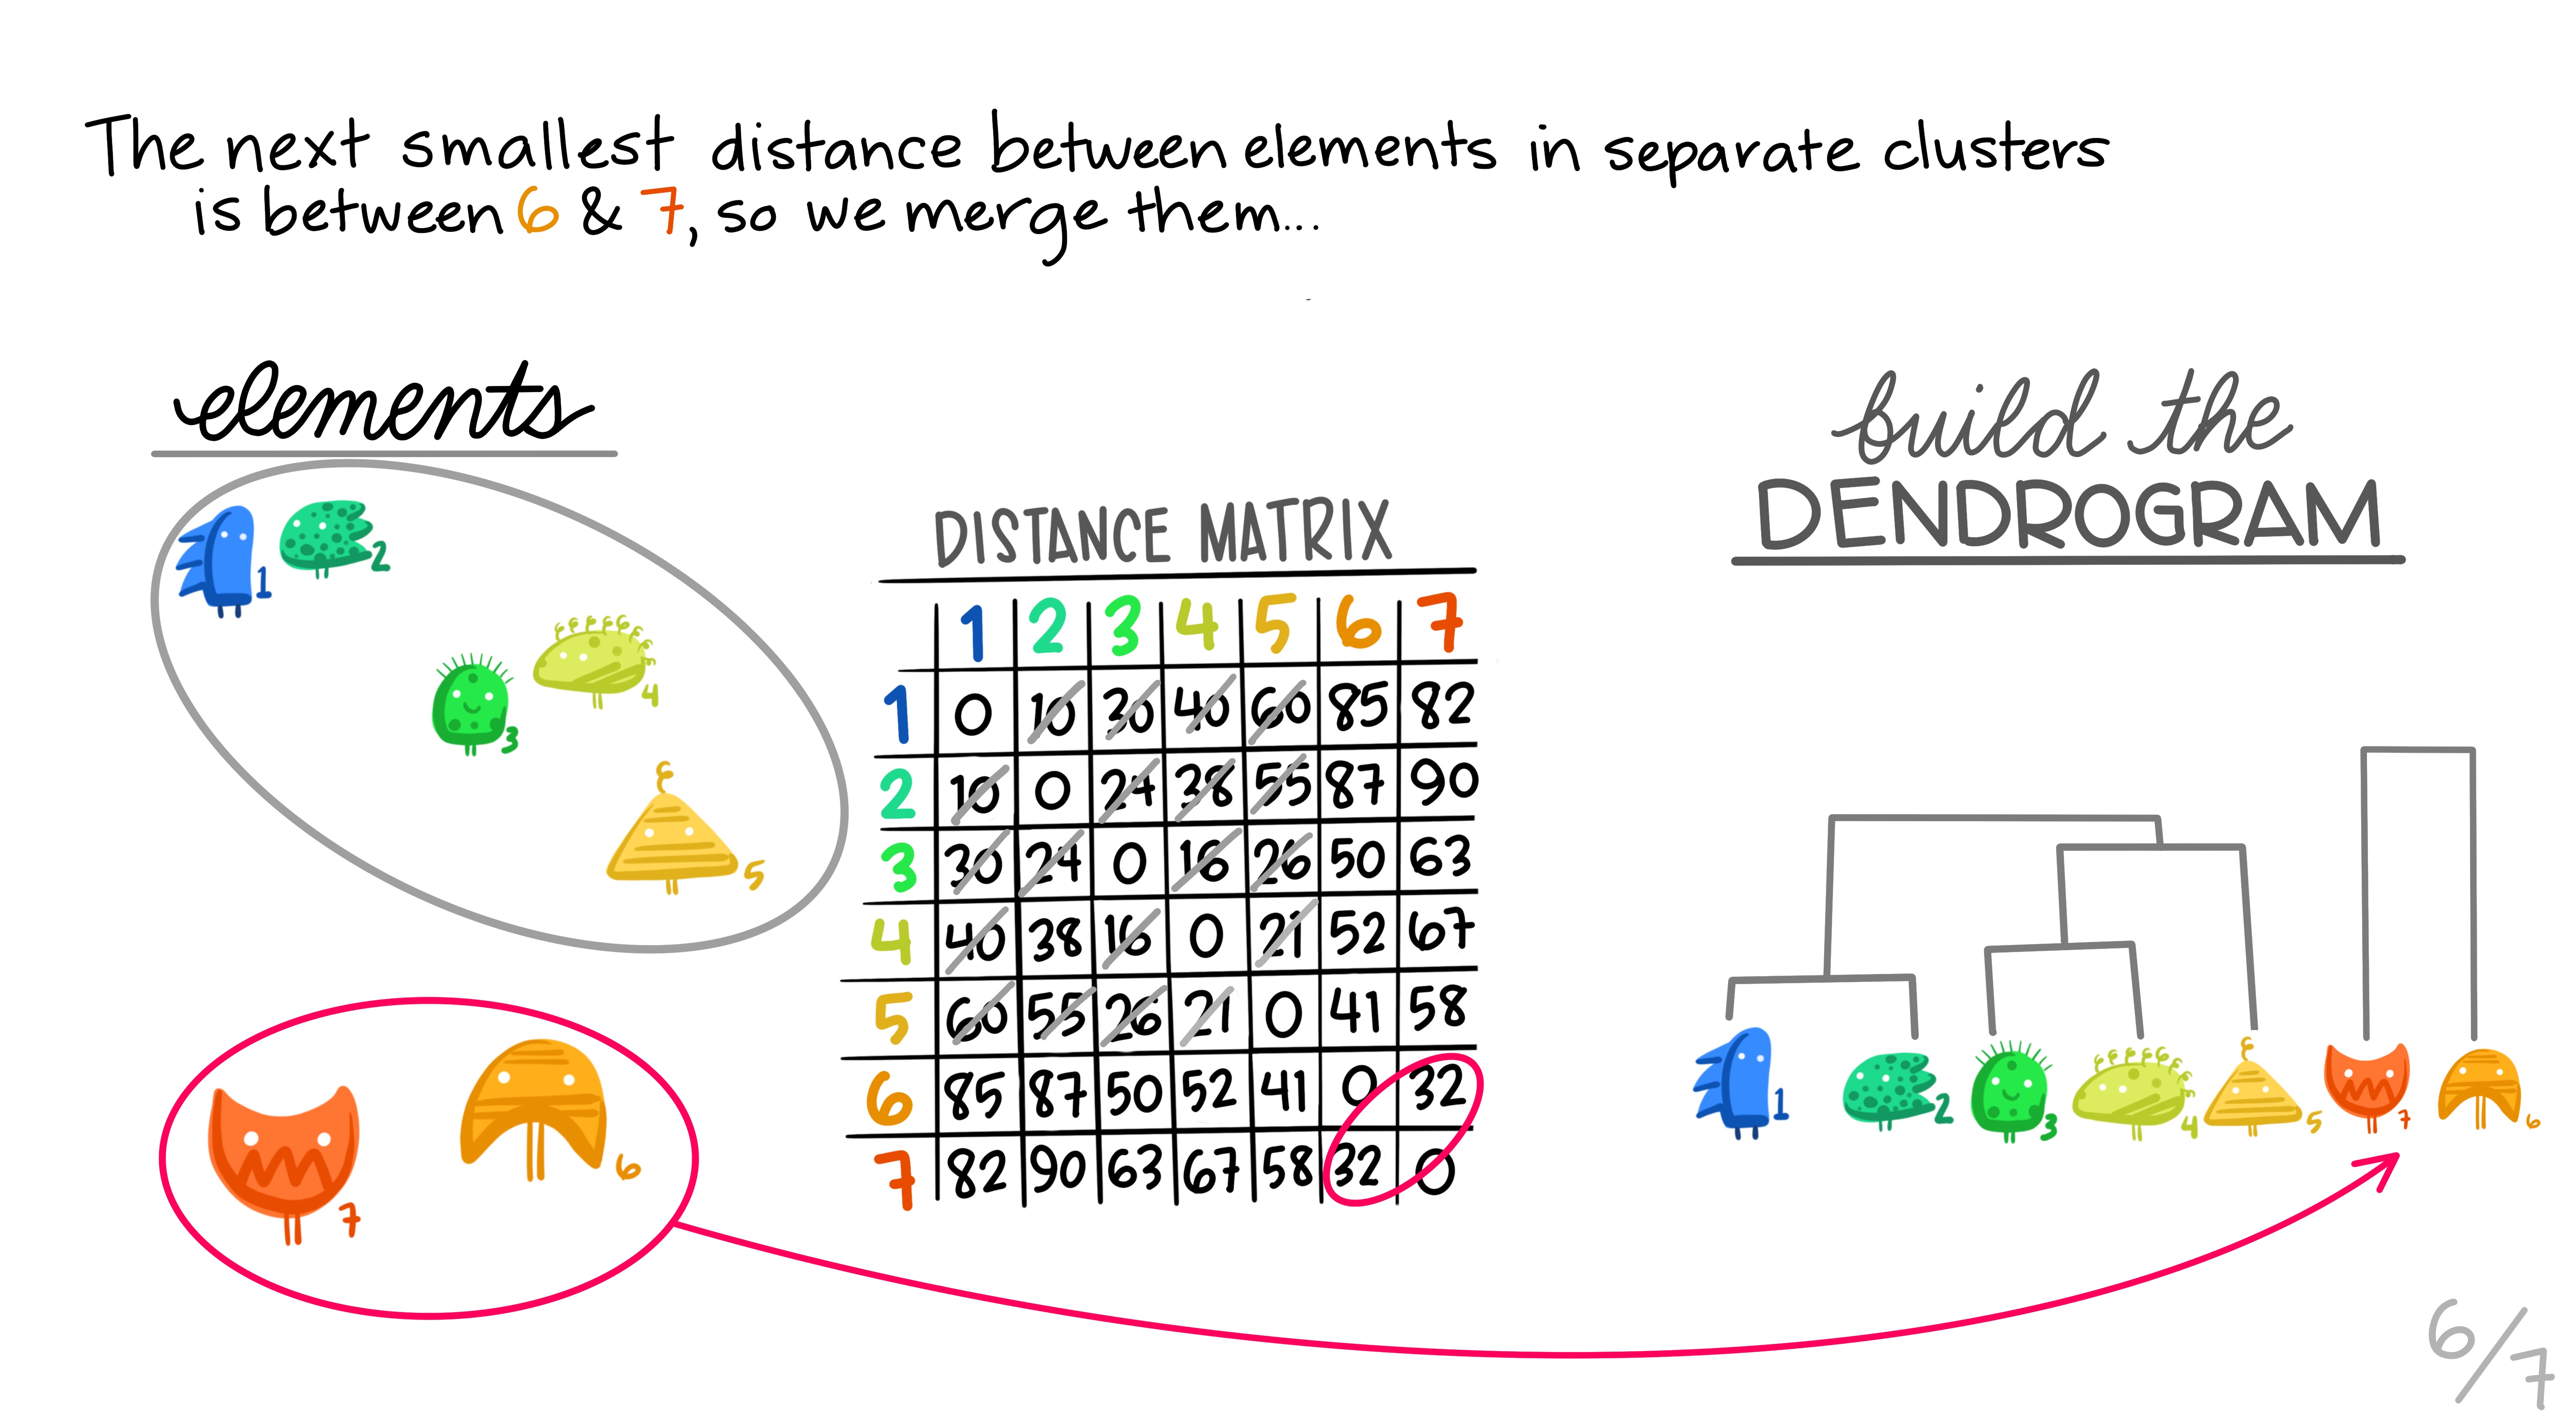 The next smallest distance between elements in separate clusters
is between 6 & 7, so we merge them...
elements
1
2
3
4
5
7
6
DISTANCE MATRIX
1 2 3 4 5 6 7
1 0 10 30 40 60 85 82
2 10 0 24 38 55 87 90
3 30 24 0 16 26 50 63
4 40 38 16 0 21 52 67
5 60 55 26 21 0 41 58
6 85 87 50 52 41 0 32
7 82 90 63 67 58 32 0
build the
DENDROGRAM
1 2 3 4 5 7 6
6/7